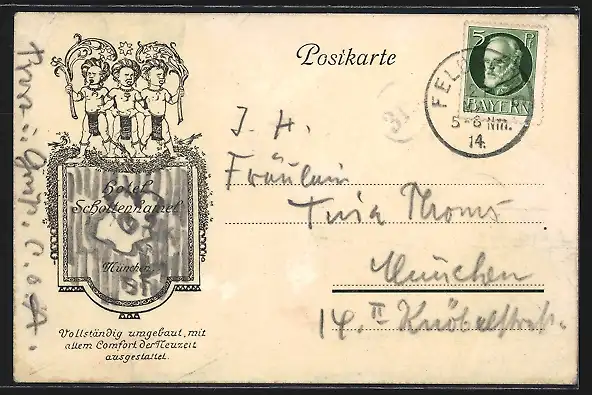 Postkarte
5 Pf
BAYERN
FEL
5-6 Nm.
14.
31
Hotel
Schottenhamel
München
Vollständig umgebaut, mit
allem Comfort der Neuzeit
ausgestattet.
I. H.
Fräulein
Thoms
München
14. II Knöbelstraße.